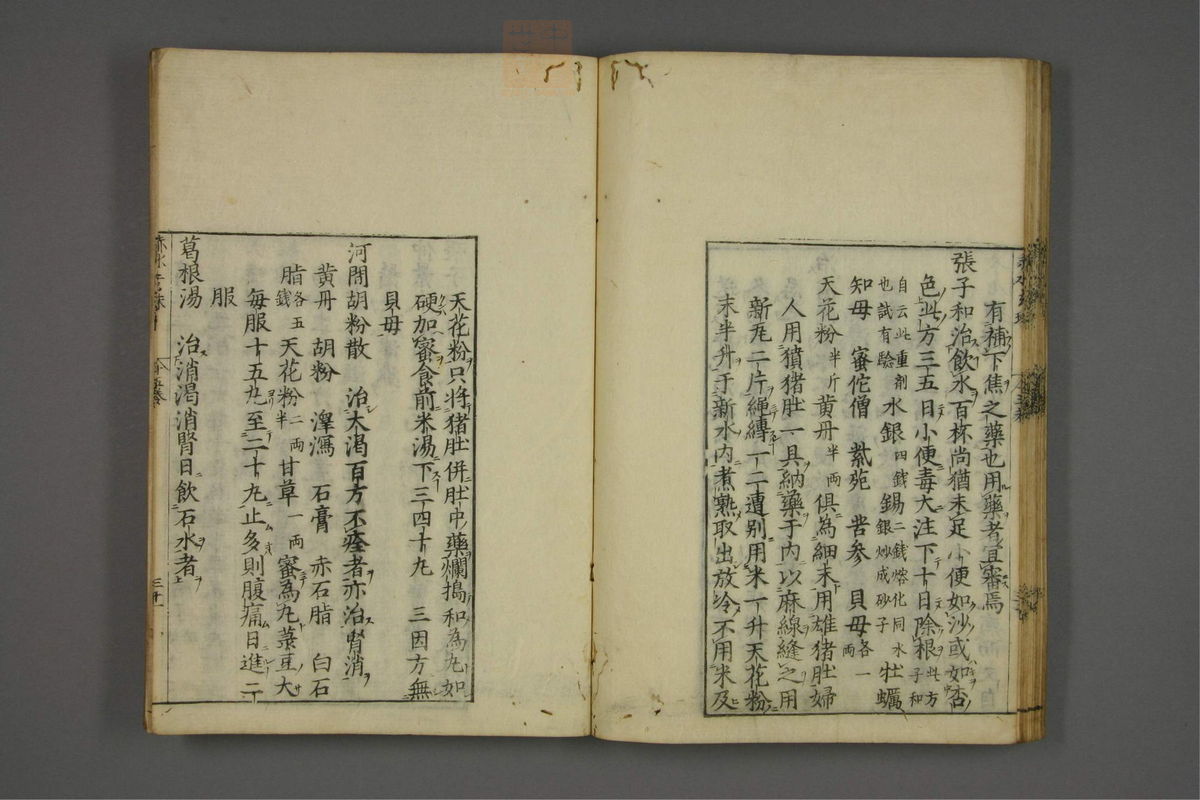 有補下焦之藥也用藥者宜審焉
張子和治飲水百杯尚猶未足小便如沙或如杏
色此方三五日小便毒大注下十日除根此方子和
自云此重劑也試有驗水銀四錢錫二錢熔化同水銀炒成砂子牡蠣
知母 蜜佗僧 紫菀 苦參 貝母各一兩
天花粉半斤黃丹半兩俱為細末用雄猪肚婦
人用獖猪肚一具納藥于內以麻線縫之用
新瓦二片繩縛一二遭别用米一升天花粉
末半升于新水內煮熟取出放冷不用米及
天花粉只將猪肚併肚中藥爛搗和為丸如
硬加蜜食前米湯下三四十丸 三因方無
貝母
河間胡粉散 治大渴百方不痊者亦治腎消
黃丹 胡粉 澤瀉 石膏 赤石脂 白石
脂各五錢天花粉二兩半甘草一兩蜜為丸菉豆大
每服十五丸至二十丸止多則腹痛日進二
服
葛根湯 治消渴消腎日飲石水者